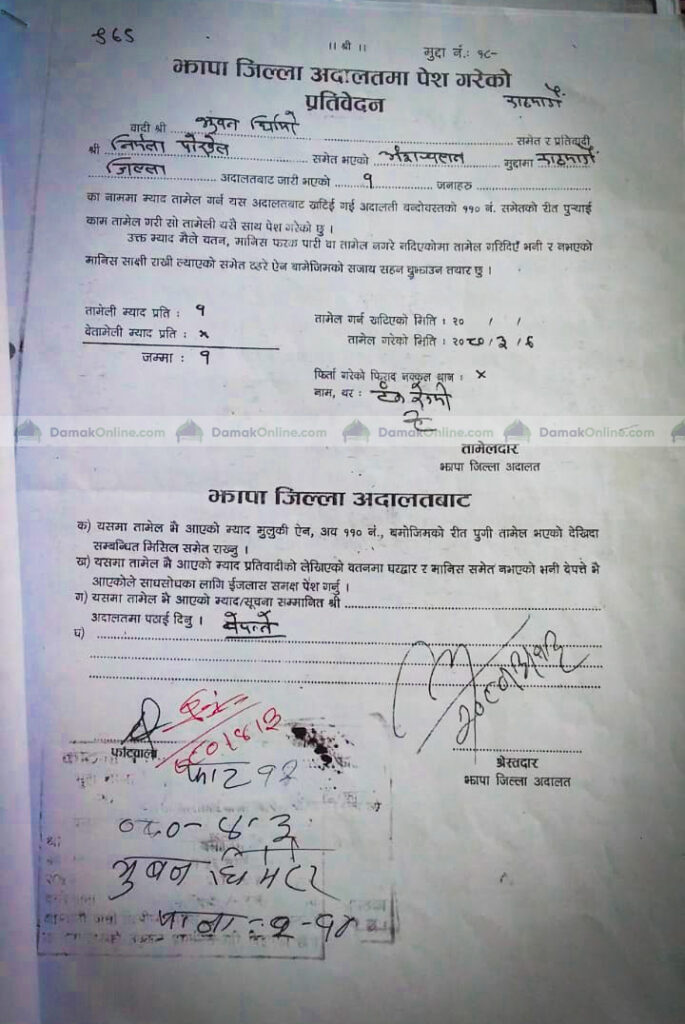 ९६5
।। श्री ।।
मुद्दा नं.: १८-
झापा जिल्ला अदालतमा पेश गरेको
प्रतिवेदन
वादी श्री भुवन घिमिरे समेत र प्रतिवादी
श्री निर्मला पोखरेल समेत भएको मुद्दामा
जिल्ला अदालतबाट जारी भएको १ जनाहरु
का नाममा म्याद तामेल गर्न यस अदालतबाट खटिई गई अदालती बन्दोवस्तको ११० नं. समेतको रीत पुऱ्याई
काम तामेल गरी सो तामेली यसै साथ पेश गरेको छु ।
उक्त म्याद मैले वतन, मानिस फरक पारी वा तामेल नगरे नदिएकोमा तामेल गरिदिएँ भनी र नभएको
मानिस साक्षी राखी ल्याएको समेत ठहरे ऐन बामेजिमको सजाय सहन बुझाउन तयार छु ।
तामेली म्याद प्रति : १
तामेल गर्न खटिएको मिति : २० / /
बेतामेली म्याद प्रति : x
तामेल गरेको मिति : २०८०/३/६
जम्मा : १
फिर्ता गरेको फिराद नक्कल थान : x
नाम, थर :
DamakOnline.com DamakOnline.com DamakOnline.com DamakOnline.com DamakOnline.com
तामेलदार
झापा जिल्ला अदालत
झापा जिल्ला अदालतबाट
क) यसमा तामेल भै आएको म्याद मुलुकी ऐन, अव ११० नं., बमोजिमको रीत पुगी तामेल भएको देखिदा
सम्बन्धित मिसिल समेत राख्नु ।
ख) यसमा तामेल भै आएको म्याद प्रतिवादीको लेखिएको वतनमा घरद्वार र मानिस समेत नभएको भनी बेपत्ते भै
आएकोले साधसोधका लागि ईजलास समक्ष पेश गर्नु ।
ग) यसमा तामेल भै आएको म्याद/सूचना सम्मानित श्री
अदालतमा पठाई दिनु । बेपत्ते
घ)
फाँटवाला
श्रेस्तदार
झापा जिल्ला अदालत
फाट १२
०८०-४-३
भुबन घिमिरे
पाना : २-१४